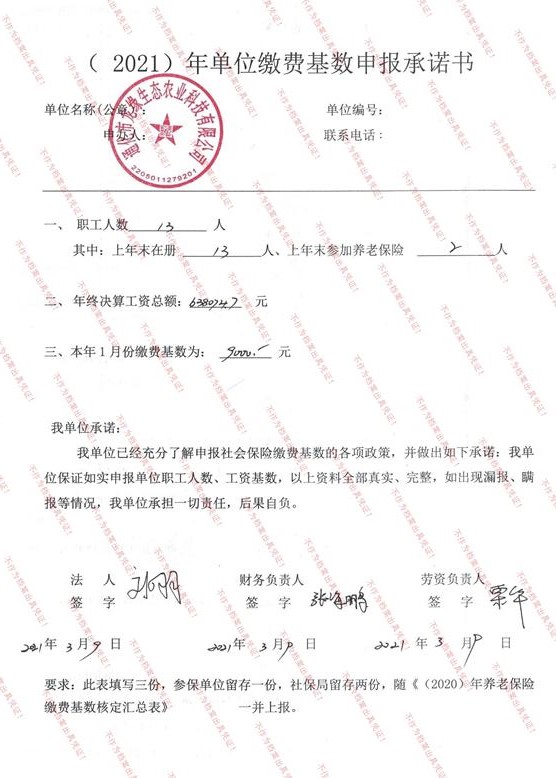 （ 2021）年单位缴费基数申报承诺书
单位名称(公章)： 单位编号：
申办人： 联系电话：
2205011279201
一、 职工人数 13 人
其中：上年末在册 13 人、上年末参加养老保险 2 人
二、 年终决算工资总额： 元
三、本年 1 月份缴费基数为： 9000.- 元
我单位承诺：
我单位已经充分了解申报社会保险缴费基数的各项政策，并做出如下承诺：我单
位保证如实申报单位职工人数、工资基数，以上资料全部真实、完整，如出现漏报、瞒
报等情况，我单位承担一切责任，后果自负。
法 人 财务负责人 劳资负责人
签 字 签 字 签 字
2021年 3 月 9 日 2021年 3 月 9 日 2021 年 3 月 9 日
要求：此表填写三份，参保单位留存一份，社保局留存两份，随《（2020）年养老保险
缴费基数核定汇总表》 一并上报。